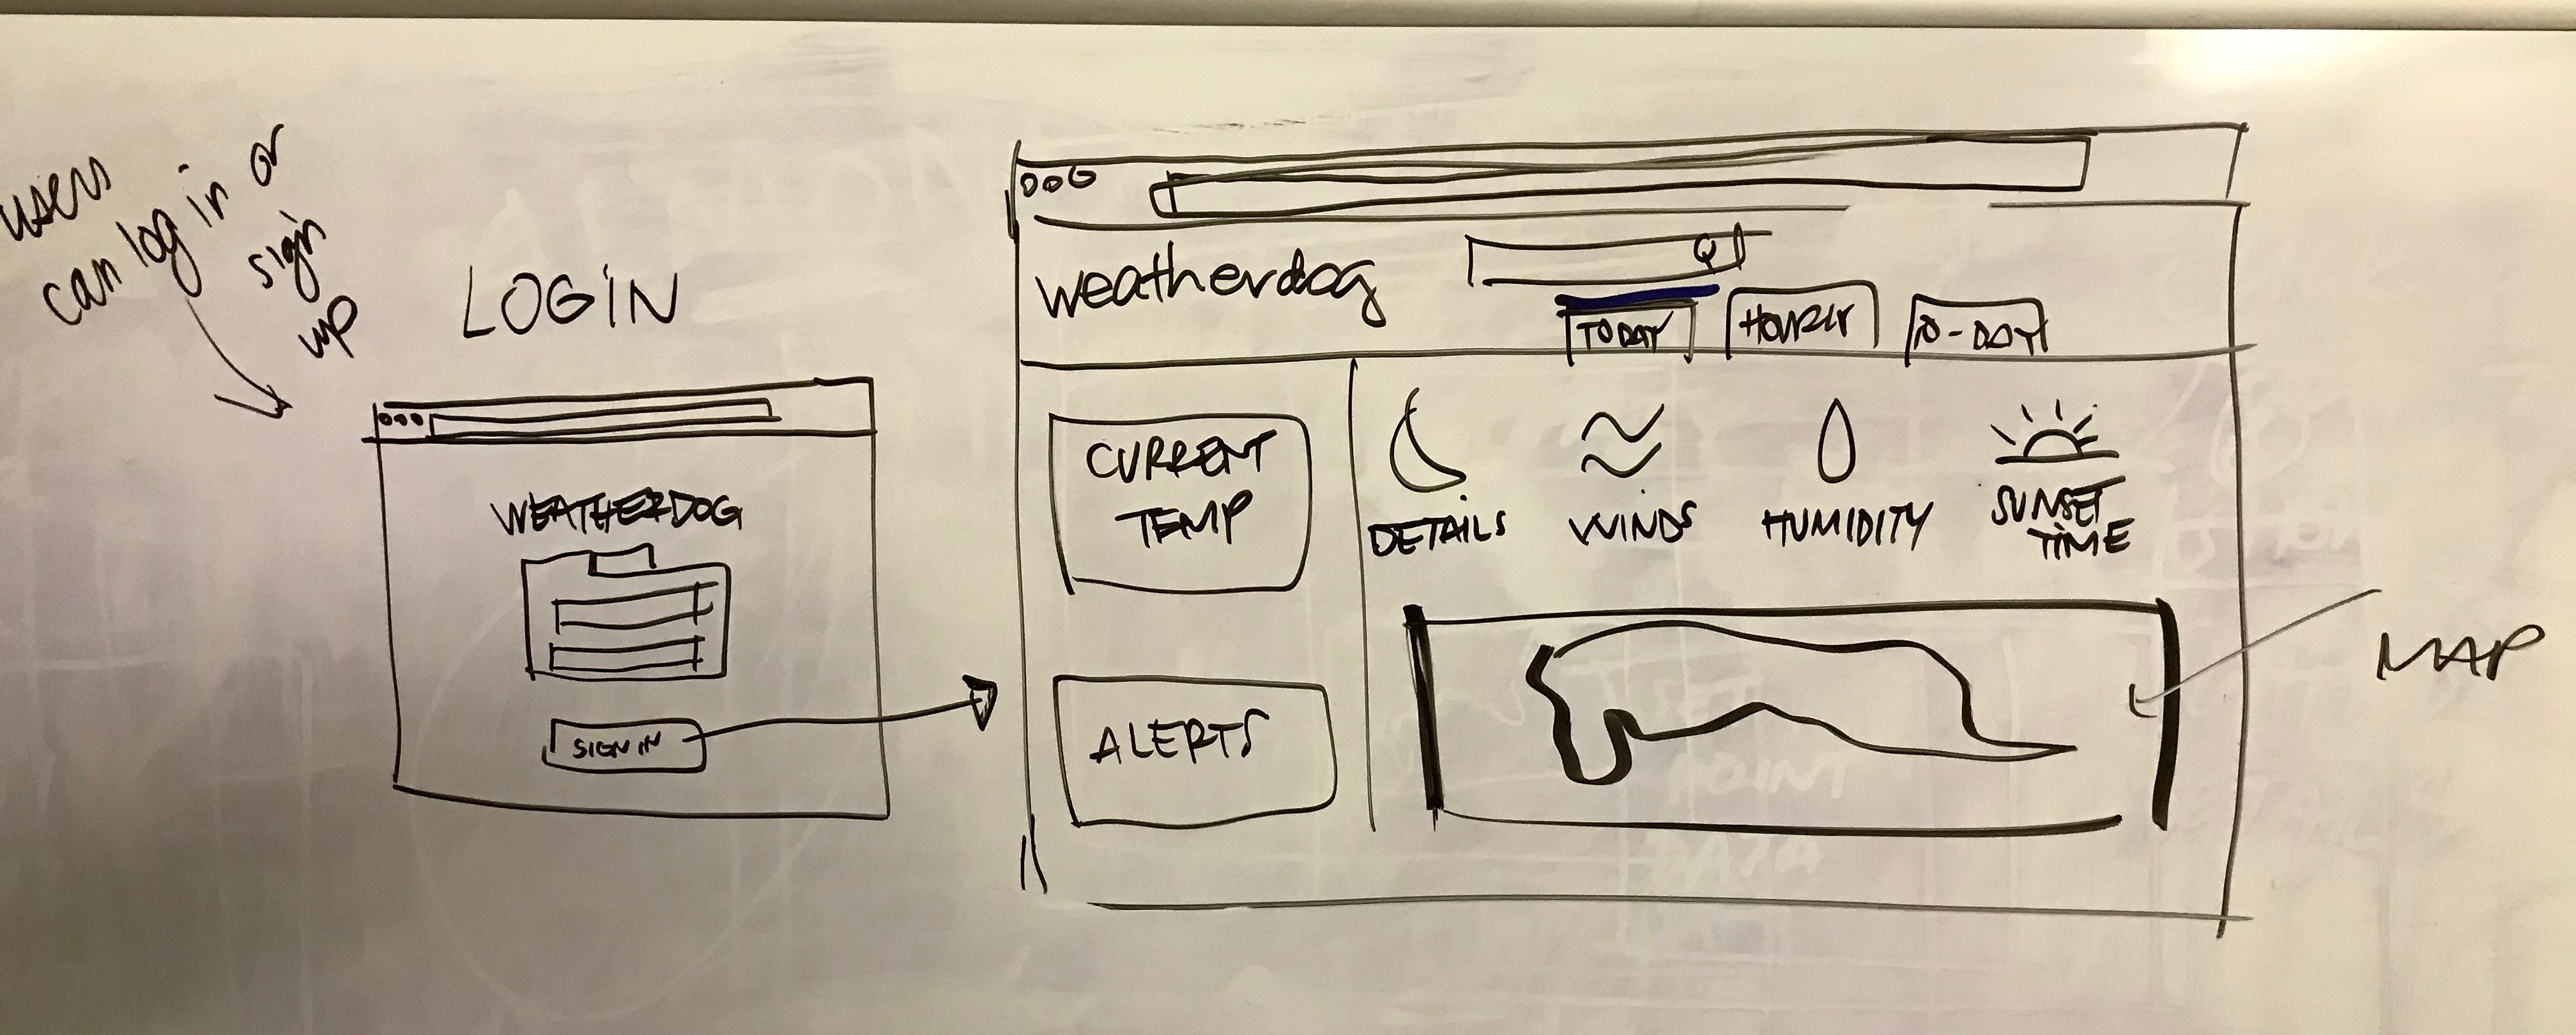 users
can log in or
sign
up
LOGIN
WEATHERDOG
SIGN IN
weatherdog
TODAY
HOURLY
10-DAY
CURRENT
TEMP
ALERTS
DETAILS
WINDS
HUMIDITY
SUNSET
TIME
MAP